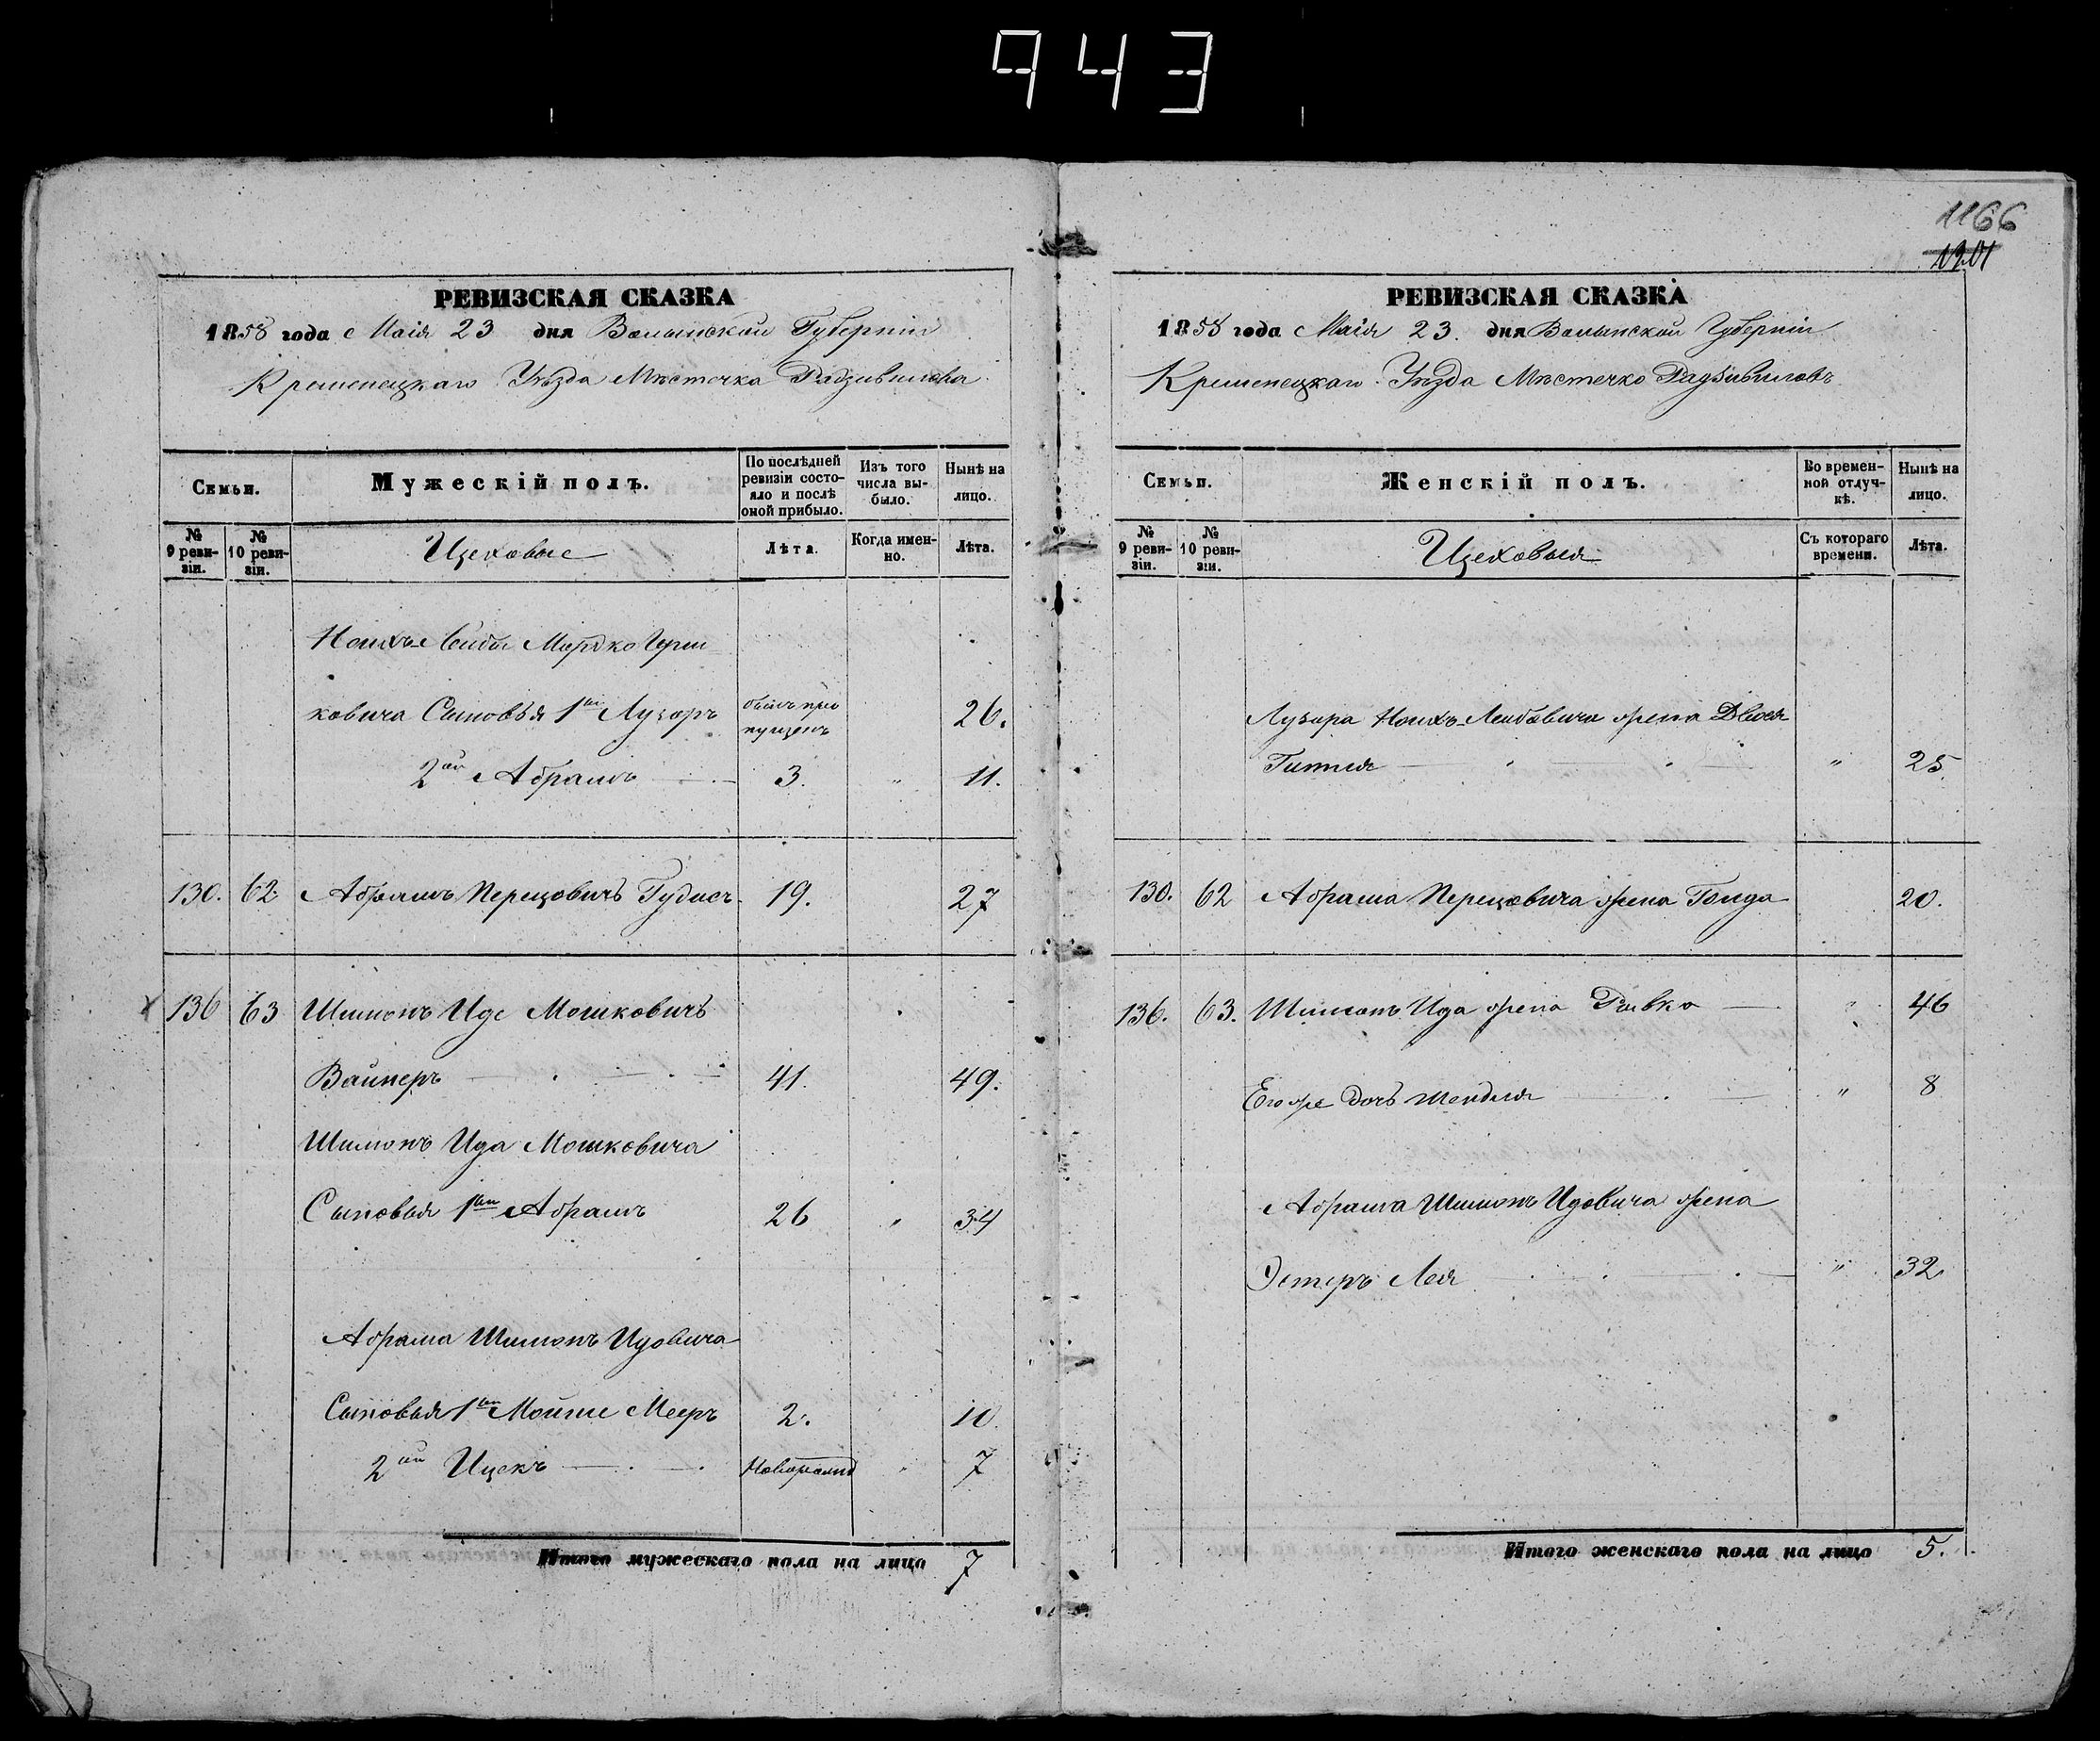 943
1166
1201
РЕВИЗСКАЯ СКАЗКА
1858 года Маія 23 дня Волынской Губерніи
Кременецкаго Уѣзда Мѣстечка Радзивилова
Семьи.
Мужескій полъ.
По послѣдней ревизіи состояло и послѣ оной прибыло.
Изъ того числа выбыло.
Нынѣ на лицо.
№ 9 ревизіи.
№ 10 ревизіи.
Цеховые
Лѣта.
Когда именно.
Лѣта.
Мордко Герш
ковича Сыновья 1ый Лузоръ былъ пропущенъ 26.
2ой Абрамъ 3. " 11.
130. 62 Абрамъ Перецовичъ 19. 27
136 63 Шимонъ Иде Мошковичъ
Вайнеръ 41. 49.
Шимонъ Ида Мошковича
Сыновья 1ый Абрамъ 26 " 34
Абрама Шимонъ Идовича
Сыновья 1ый Мойше Мееръ 2. 10.
2ой Ицекъ 7
Итого мужескаго пола на лицо 7
РЕВИЗСКАЯ СКАЗКА
1858 года Маія 23. дня Волынской Губерніи
Кременецкаго Уѣзда Мѣстечко Радзивиловъ
Семьи.
Женскій полъ.
Во временной отлучкѣ.
Нынѣ на лицо.
№ 9 ревизіи.
№ 10 ревизіи.
Цеховыя
Съ котораго времени.
Лѣта.
Лузора Лейбовича жена Двося
Гитля " 25.
130. 62 Абрама Перецовича жена Голда 20.
136. 63. Шимонъ Ида жена Ривка " 46
Его же дочь Шендля " 8
Абрама Шимонъ Идовича жена
Эстеръ Лея " 32
Итого женскаго пола на лицо 5.